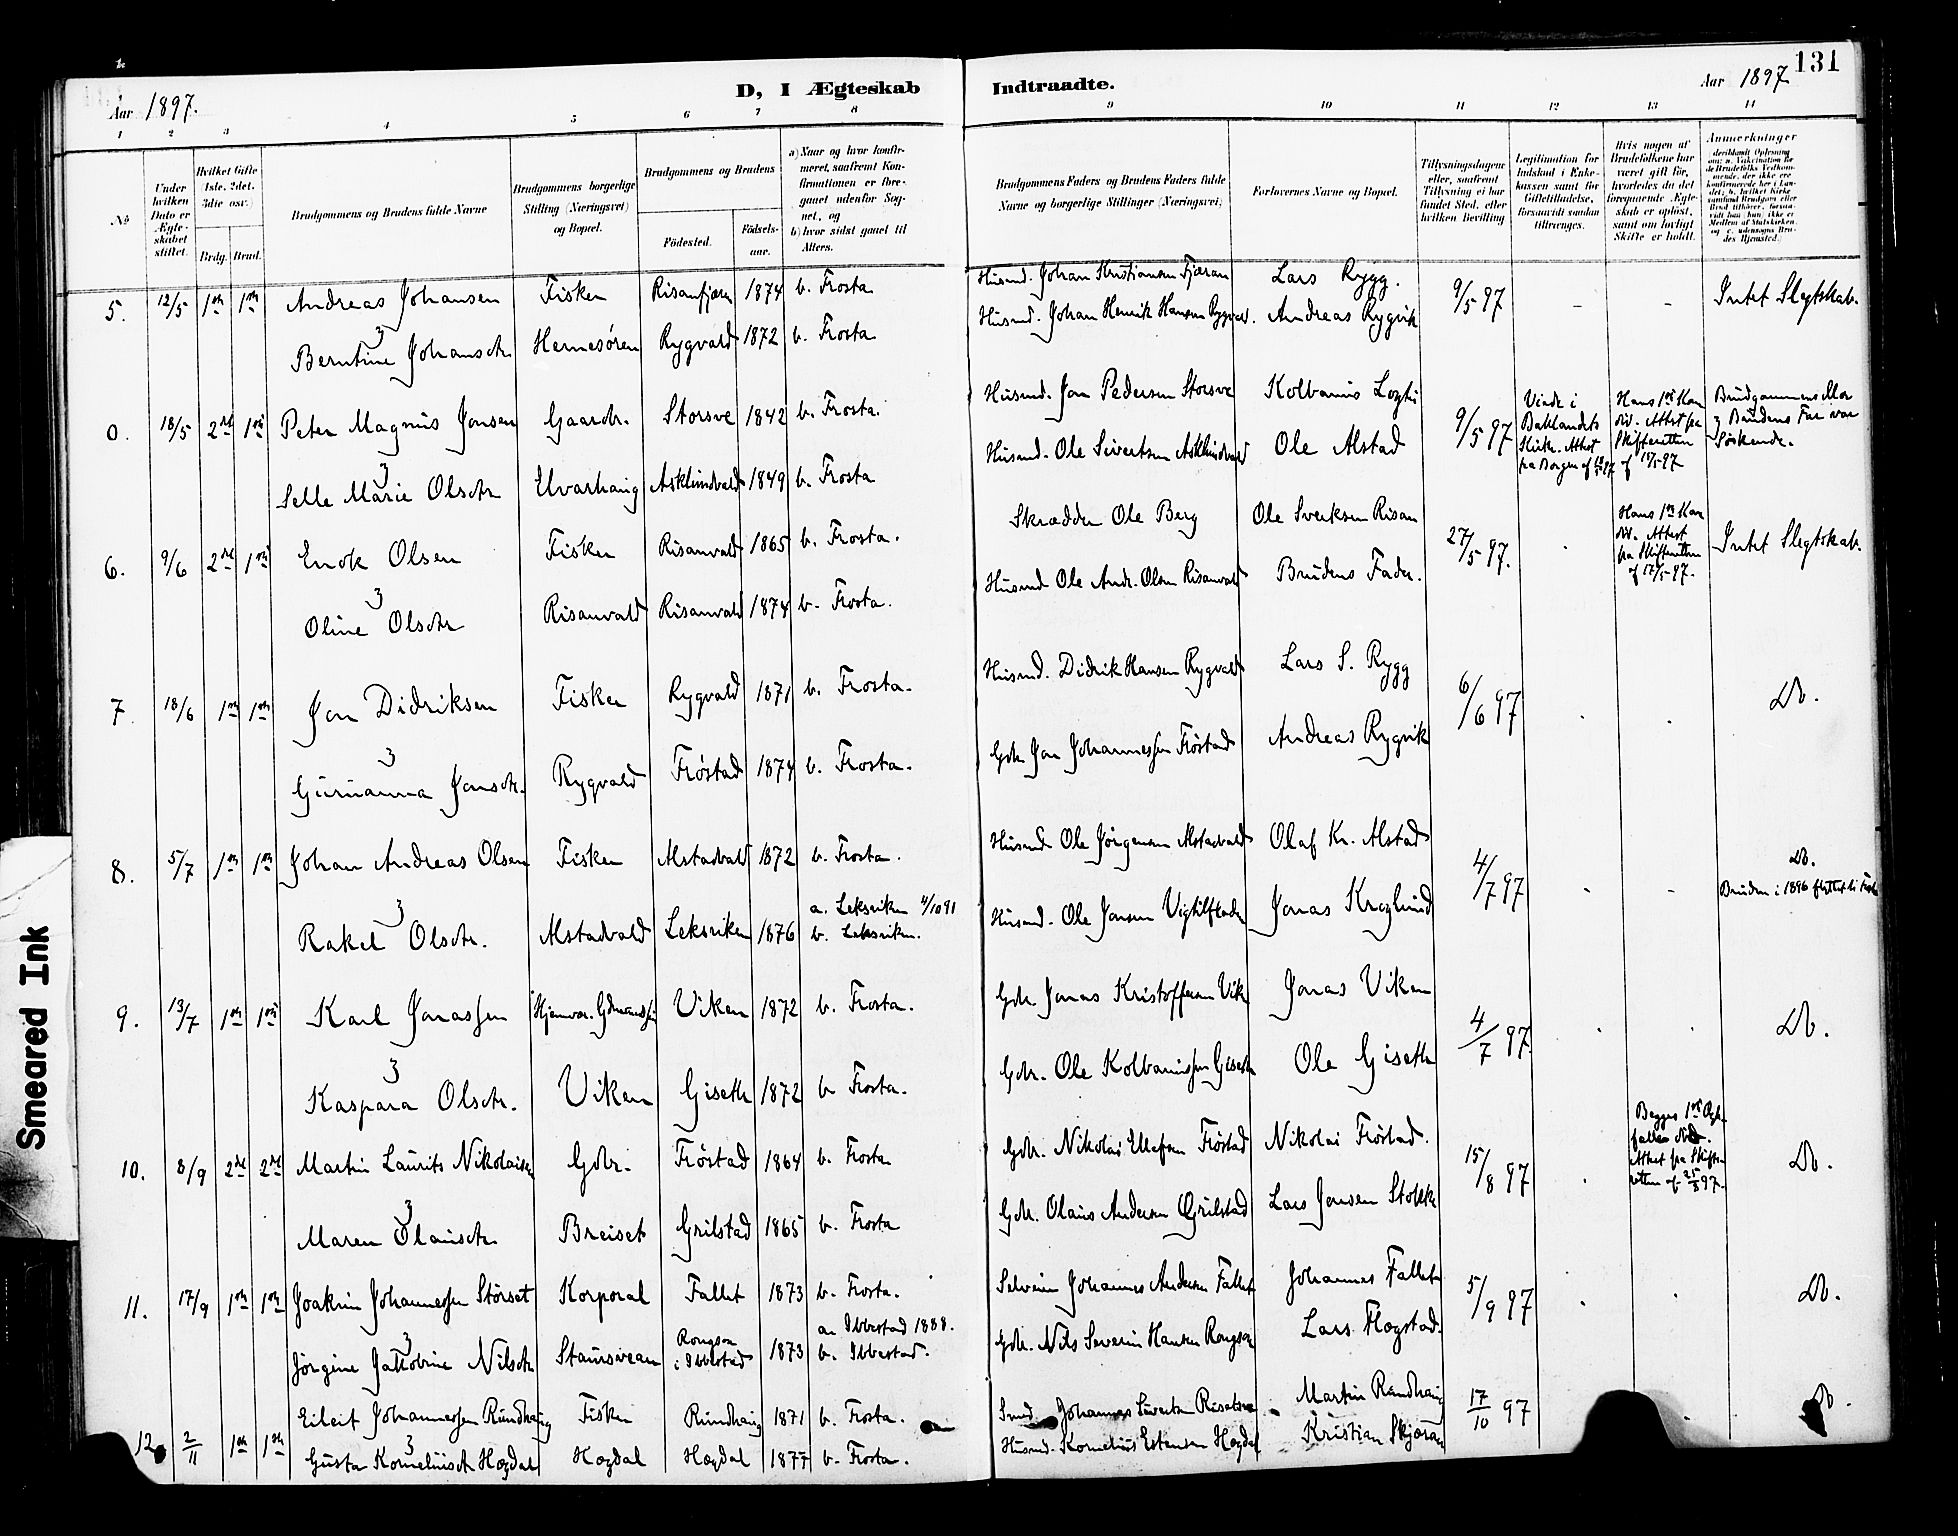 131
Aar 1897.
D, I Ægteskab Indtraadte.
Aar 1897
1 2 3 4 5 6 7 8 9 10 11 12 13 14
No
Under hvilken Dato er Ægteskabet stiftet.
Hvilket Gifte (1ste, 2det, 3die osv.)
Brdg. Brud.
Brudgommens og Brudens fulde Navne
Brudgommens borgerlige Stilling (Næringsvei) og Bopæl.
Brudgommens og Brudens
Födested. Födsels-aar.
a) Naar og hvor konfirmeret, saafremt Konfirmationen er foregaaet udenfor Sognet, og
b) hvor sidst gaaet til Alters.
Brudgommens Faders og Brudens Faders fulde Navne og borgerlige Stillinger (Næringsvei)
Forlovernes Navne og Bopæl.
Tillysningsdagene eller, saafremt Tillysning ei har fundet Sted, efter hvilken Bevilling
Legitimation for Indskud i Enkekassen samt for Giftetilladelse, forsaavidt saadan tiltrænges.
Hvis nogen af Brudefolkene har været gift för, hvorledes da det foregaaende Ægteskab er oplöst, samt om lovligt Skifte er holdt.
Anmærkninger
5. 12/5 1ste 1ste Andreas Johansen Fisker Risanfjæren 1874 b. Frosta Husmd. Johan Kristiansen Fjæran Lars Rygg. 9/5 97 - - Intet Slegtskab.
3
Berntine Johansdtr Hernesören Rygvald 1872 b. Frosta Husmd. Johan Henrik Hansen Rygvald. Andreas Rygvik
0. 18/5 2det 1ste Peter Magnus Jonsen Gaardr. Storsve 1842 b. Frosta. Husmd. Jon Pedersen Storsve Kolbanus Logti 9/5 97 Viede i Baklandets Kirke. Attest fra Borgen af Hans 1ste Kone död. Attest fra Skifteretten af 15/5-97 Brudgommens Mor og Brudens Far var Söskende.
3
Selle Marie Olsdtr Elvarhaug Asklundvald 1849 b. Frosta Husmd. Ole Sivertsen Asklundvald Ole Alstad
6. 9/6 2det 1ste Enok Olsen Fisker Risanvald 1865 b. Frosta. Skrædder Ole Berg Ole Sverksen Risan 27/5 97. Hans 1ste Kone död. Attest fra Skifteretten af 12/5-97. Intet Slegtskab.
3
Oline Olsdtr Risanvald Risanvald 1874 b. Frosta. Husmd Ole Andr. Olsen Risanvald Brudens Fader.
7. 18/6 1ste 1ste Jon Didriksen Fisker Rygvald 1871 b. Frosta. Husmd. Didrik Hansen Rygvald Lars S. Rygg 6/6 97 Do.
3
Gurianna Jonsdtr. Rygvald Fröstad 1874 b. Frosta. Gdr Jon Johannessen Fröstad Andreas Rygvik
8. 5/7 1ste 1ste Johan Andreas Olsen Fisker Alstadvald 1872 b. Frosta. Husmd Ole Jörgensen Alstadvald Olaf Kr. Alstad 4/7 97 - Do.
Bruden i 1896 flyttet til Frosta
3
Rakel Olsdtr. Alstadvald Leksviken 1876 a. Leksviken 4/10 91
b. Leksviken. Husmd. Ole Jonsen Jonas Kroglund
9. 13/7 1ste 1ste Karl Jonassen Hjemvær. Gdmandssön Viken 1872 b. Frosta. Gdr. Jonas Kristoffersen Viken Jonas Viken 4/7 97. Do.
3
Kaspara Olsdtr. Viken Giseth 1872 b Frosta. Gdr. Ole Kolbanussen Giseth Ole Giseth
10. 8/9 2det 2det Martin Laurits Nikolaisen Gdr. Fröstad 1864 b. Frosta Gdr. Nikolai Ellefsen Fröstad Nikolai Fröstad. 15/8 97 Begges 1ste Ægtefæller död. Attest fra Skifteretten af 25/8 97. Do.
3
Maren Olausdtr Breiset Grilstad 1865 b. Frosta Gdr. Olaus Andersen Grilstad Lars Jensen Stokke
11. 17/9 1ste 1ste Joakim Johannessen Störset Korporal Fallet 1873 b. Frosta. Selveier Johannes Andersen Fallet Johannes Fallet 5/9 97 Do.
3
Jörgine Jakobine Nilsdtr Staursvean Rongson i Ibbestad 1873 a. Ibbestad 1888.
b. Ibbestad. Gdr. Nils Severin Hansen Rongson Lars Flogstad.
12 2/11 1ste 1ste Eileit Johannessen Rundhaug Fisker Rundhaug 1871 b. Frosta. Smed Johannes Sivertsen Martin Rundhaug 17/10 97 Do.
3
Gusta Korneliusdtr Hogdal Hogdal Hogdal 1877 b. Frosta. Husmd. Kornelius Estensen Hogdal Kristian Skjæran
Smeared Ink